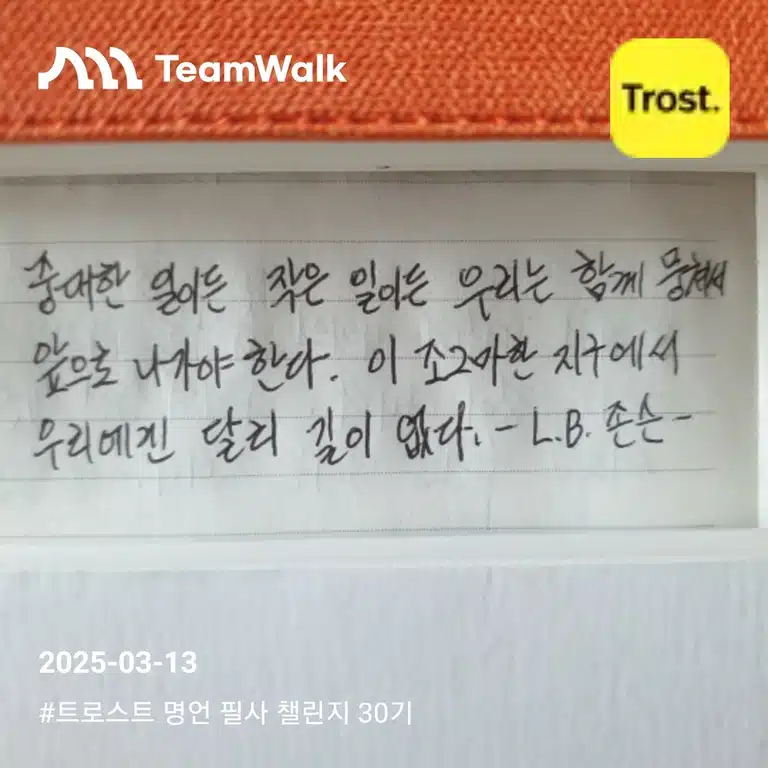 TeamWalk
Trost.
중대한 일이든 작은 일이든 우리는 함께 뭉쳐서
앞으로 나가야 한다. 이 조그마한 지구에서
우리에겐 달리 길이 없다. - L.B. 존슨 -
2025-03-13
#트로스트 명언 필사 챌린지 30기